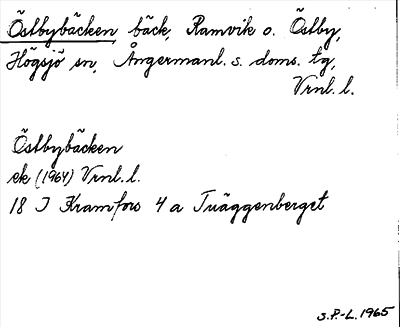 Östbybäcken bäck, Ramvik o. Östby,
Högsjö sn, Ångermanl. s. doms. tg,
Vrnl. l.
Östbybäcken
ek (1964) Vrnl. l.
18 I Kramfors 4 a Tväggenberget
S.P.-L. 1965